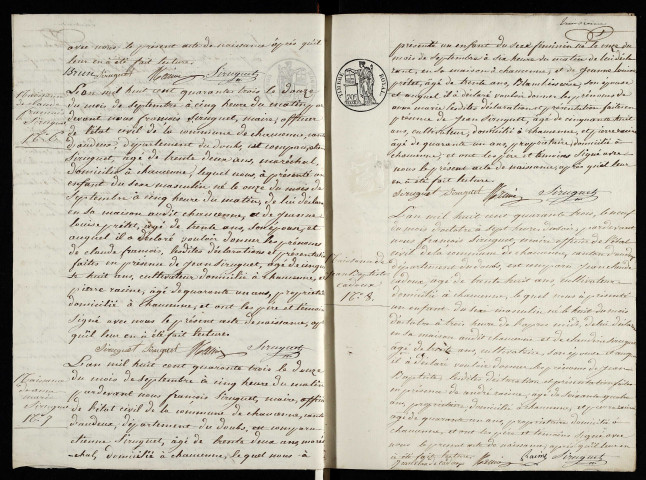 avec nous le présent acte de naissance après qu'il
leur en a été fait lecture.
Siruguet Racine Siruguet
L'an mil huit cent quarante trois le douze
du mois de Septembre à cinq heure du matin, par
devant nous françois Siruguet, maire, officier
de l'état civil de la commune de chaucenne, canton
d'audeux, département du doubs, est comparu, etienne
Siruguet, agé de trente deux ans, maréchal,
domicilié à chaucenne, lequel nous a présenté un
enfant du sexe masculin né le onze du mois de
Septembre à cinq heure du matin, de lui déclarant
en sa maison audit chaucenne, et de jeanne
louise prétet, agé de trente ans, son épouse, et
auquel il a déclaré vouloir donner les prénoms
de claude françois, lesdites déclaration et présentation
faites en présence de jean Siruguet, agé de cinquante
huit ans, cultivateur, domicilié à chaucenne, et
pierre racine, agé de quarante un ans, propriétaire
domicilié à chaucenne, et ont les père et témoins
signé avec nous le présent acte de naissance, après
qu'il leur en a été fait lecture.
Siruguet Siruguet Racine Siruguet
L'an mil huit cent quarante trois le douze
du mois de Septembre à cinq heure du matin
pardevant nous françois Siruguet, maire, officier
de l'état civil de la commune de chaucenne, canton
d'audeux, département du doubs, est comparu
etienne Siruguet, agé de trente deux ans maré-
chal, domicilié à chaucenne, lequel nous a
Naissance
de claude
françois
Siruguet
N° 6
Naissance
marie
Siruguet
N° 7
présenté un enfant du sexe féminin né le onze du
mois de Septembre à six heure du matin de lui décla-
rant, en sa maison à chaucenne, et de jeanne louise
prétet, agé de trente ans, son épouse
et auquel il a déclaré vouloir donner les prénoms de
marie lesdites déclaration et présentation faites en
présence de jean Siruguet, agé de cinquante huit
ans, cultivateur, domicilié à chaucenne, et pierre racine
agé de quarante un ans propriétaire, domicilié à
chaucenne, et ont les père et témoins signé avec
nous le présent acte de naissance, après qu'il leur
en a été fait lecture.
Siruguet Siruguet Racine Siruguet
L'an mil huit cent quarante trois, le neuf
du mois d'octobre à sept heure du matin, pardevant
nous françois Siruguet, maire officier de l'état
civil de la commune de chaucenne, canton d'audeux
département du doubs, est comparu jean claude
caroux, agé de trente huit ans, cultivateur
domicilié à chaucenne, lequel nous a présenté
un enfant du sexe masculin né le huit du mois
d'octobre à trois heure de lui déclarant
en sa maison audit chaucenne, et de Siruguet
agé de trente ans, son épouse et auquel
il a déclaré vouloir donner les prénoms de jean
Baptiste, lesdites déclaration et présentation faites
en présence de racine, agé de
ans, propriétaire, domicilié à chaucenne, et pierre racine
agé de quarante un ans, propriétaire domicilié à
chaucenne, et ont les père et témoins signé avec
nous le présent acte de naissance, après qu'il leur en
a été fait lecture
Racine Racine Siruguet
Naissance de
jean Baptiste
caroux
N° 8.
TIMBRE ROYAL